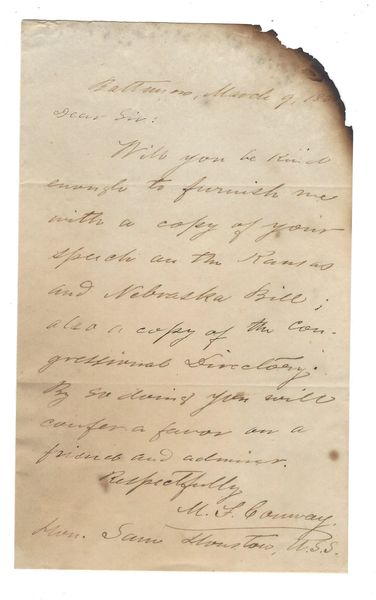 Baltimore, March 9, 18
Dear Sir:
Will you be kind
enough to furnish me
with a copy of your
speech on the Kansas
and Nebraska Bill;
also a copy of the Con-
gressional Directory.
By so doing you will
confer a favor on a
friend and admirer.
Respectfully
M. F. Conway.
Hon. Sam Houston, U.S.S.